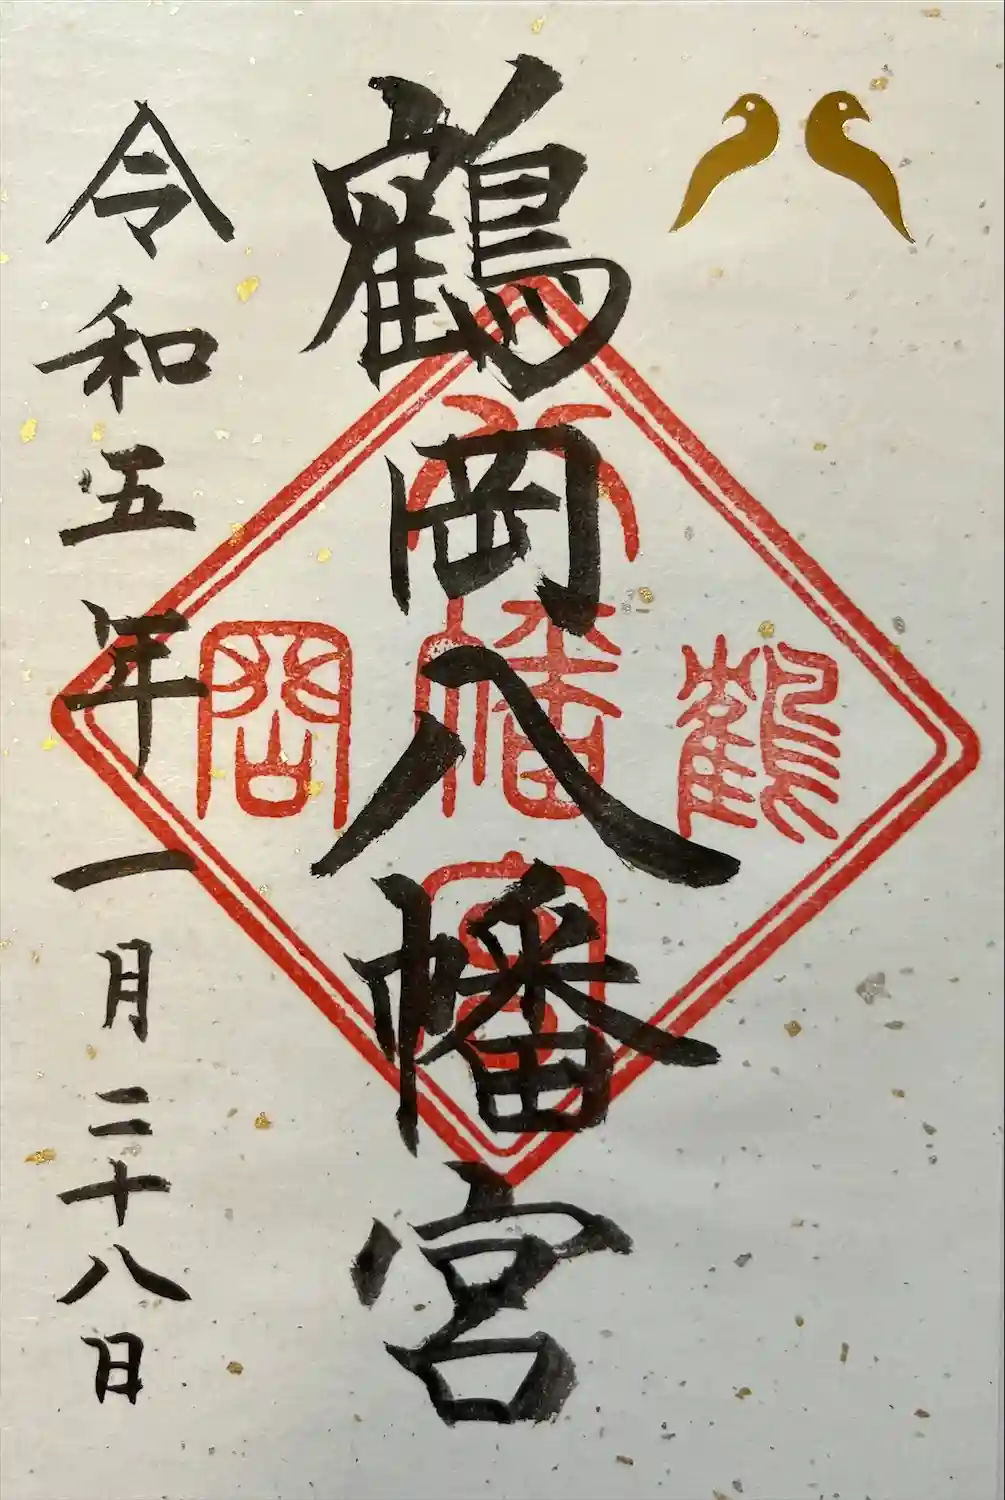 鶴岡八幡宮
令和五年一月二十八日
八
鶴
幡
岡
宮